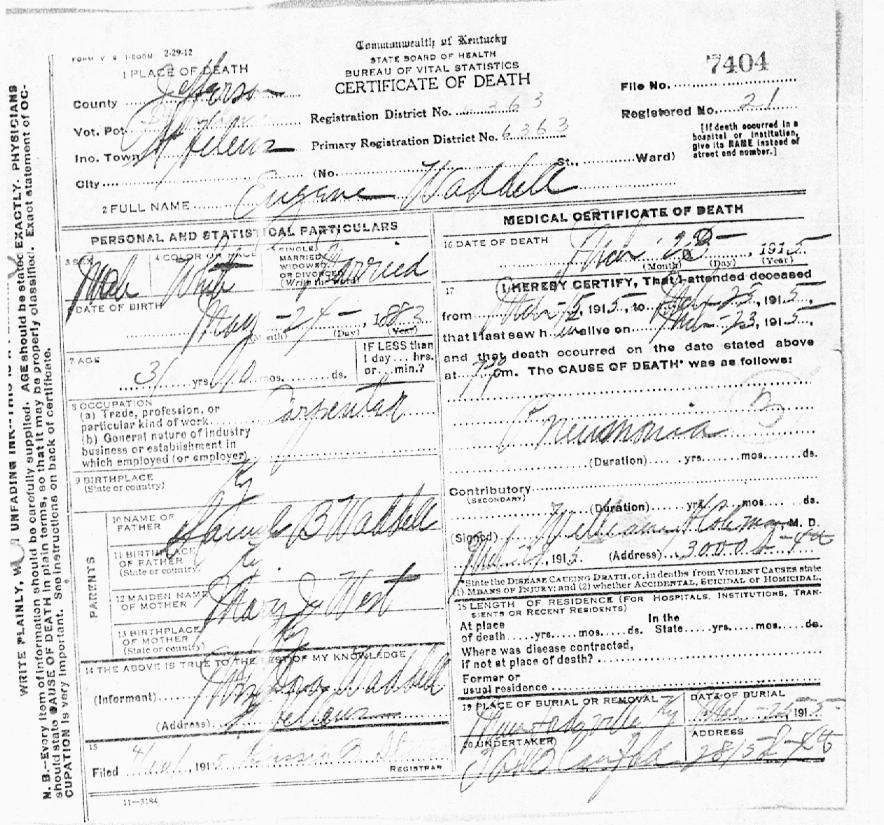 FORM V. S. 1-500M 2-29-12
Commonwealth of Kentucky
STATE BOARD OF HEALTH
BUREAU OF VITAL STATISTICS
CERTIFICATE OF DEATH
7404
File No.
1 PLACE OF DEATH
County Jefferson
Registration District No. 6363
Registered No. 21
Vot. Pct.
[If death occurred in a hospital or institution, give its NAME instead of street and number.]
Inc. Town St Helens
Primary Registration District No. 6363
City (No. St., Ward)
2 FULL NAME Eugene Waddell
PERSONAL AND STATISTICAL PARTICULARS
3 SEX Male
4 COLOR OR RACE White
5 SINGLE MARRIED WIDOWED OR DIVORCED (Write the word) Married
6 DATE OF BIRTH
May - 24 - , 1883
(Month) (Day) (Year)
7 AGE
31 yrs. 10 mos. ds.
IF LESS than 1 day... hrs. or... min.?
8 OCCUPATION
(a) Trade, profession, or particular kind of work Carpenter
(b) General nature of industry business or establishment in which employed (or employer)
9 BIRTHPLACE
(State or country) Ky
PARENTS
10 NAME OF FATHER B Waddell
11 BIRTHPLACE OF FATHER
(State or country) Ky
12 MAIDEN NAME OF MOTHER Mary J West
13 BIRTHPLACE OF MOTHER
(State or country) Ky
14 THE ABOVE IS TRUE TO THE BEST OF MY KNOWLEDGE
(Informant) Waddell
(Address) St Hellens
15
Filed , 191
REGISTRAR
11-3184
MEDICAL CERTIFICATE OF DEATH
16 DATE OF DEATH
Mar , 1915
(Month) (Day) (Year)
17 I HEREBY CERTIFY, That I attended deceased
from Mar , 1915, to Mar 25, 1915,
that I last saw him alive on Mar 23, 1915,
and that death occurred on the date stated above
at m. The CAUSE OF DEATH* was as follows:
Pneumonia
(Duration) yrs. mos. ds.
Contributory
(SECONDARY)
(Duration) yrs. mos. ds.
(Signed) William M. D.
, 1915 (Address) 3000
*State the DISEASE CAUSING DEATH, or, in deaths from VIOLENT CAUSES state
(1) MEANS OF INJURY; and (2) whether ACCIDENTAL, SUICIDAL OR HOMICIDAL.
18 LENGTH OF RESIDENCE (FOR HOSPITALS, INSTITUTIONS, TRANSIENTS OR RECENT RESIDENTS)
At place of death yrs. mos. ds. In the State yrs. mos. ds.
Where was disease contracted,
if not at place of death?
Former or
usual residence
19 PLACE OF BURIAL OR REMOVAL
Ky
DATE OF BURIAL
25 1915
20 UNDERTAKER
ADDRESS
WRITE PLAINLY, UNFADING INK—THIS IS A
N. B.—Every item of information should be carefully supplied. AGE should be stated EXACTLY. PHYSICIANS
should state CAUSE OF DEATH in plain terms, so that it may be properly classified. Exact statement of OC-
CUPATION is very important. See instructions on back of certificate.